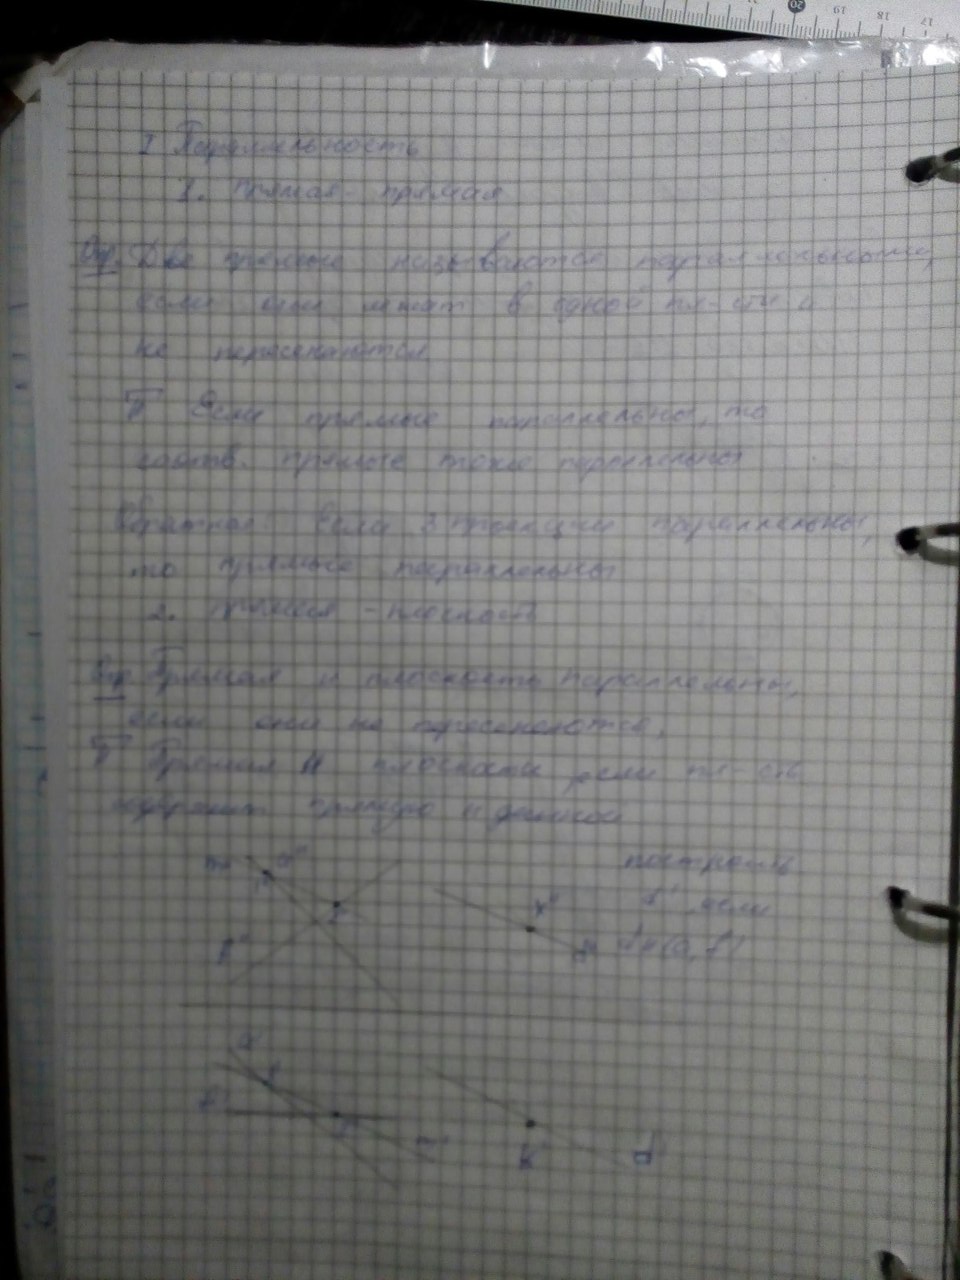 20 19 18 17
I Параллельность
1. Прямая - прямая
Опр. Две прямые называются параллельными,
если они лежат в одной пл-сти и
не пересекаются
T Если прямые параллельны, то
соотв. прямые тоже параллельны
Обратное: Если 3 проекции параллельны,
то прямые параллельны
2. прямая - плоскость
Опр Прямая и плоскость параллельны,
если они не пересекаются,
T Прямая || плоскости если пл-сть
содержит прямую || данной
построить
если